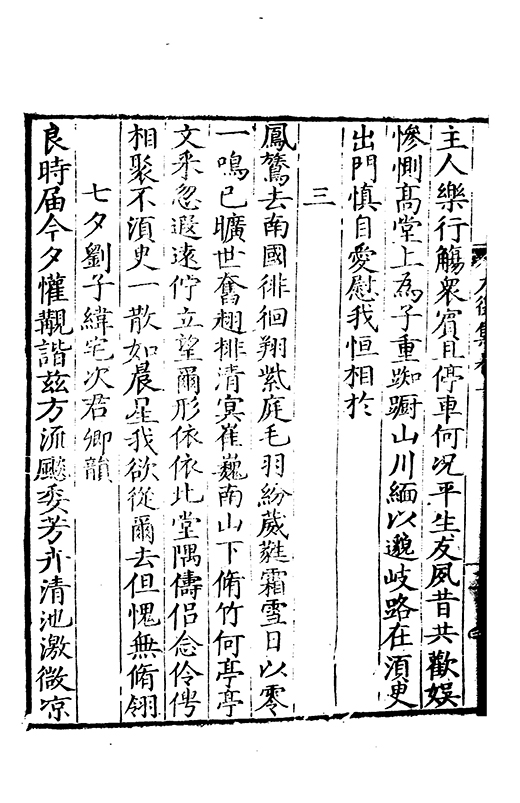 主人樂行觴衆賓且停車何況平生友夙昔共歡娱
慘惻髙堂上為子重踟蹰山川緬以邈岐路在湏臾
出門慎自愛慰我恒相於
三
鳳鶱去南國徘徊翔紫庭毛羽紛葳蕤霜雪日以零
一鳴已曠世奮翅排清冥崔巍南山下脩竹何亭亭
文釆忽遐遠佇立望爾形依依北堂隅儔侣念伶俜
相聚不湏臾一散如晨星我欲從爾去但愧無脩翎
七夕劉子緯宅次君卿韻
良時届今夕懽覯諧兹方流飈委芳卉清池激微凉